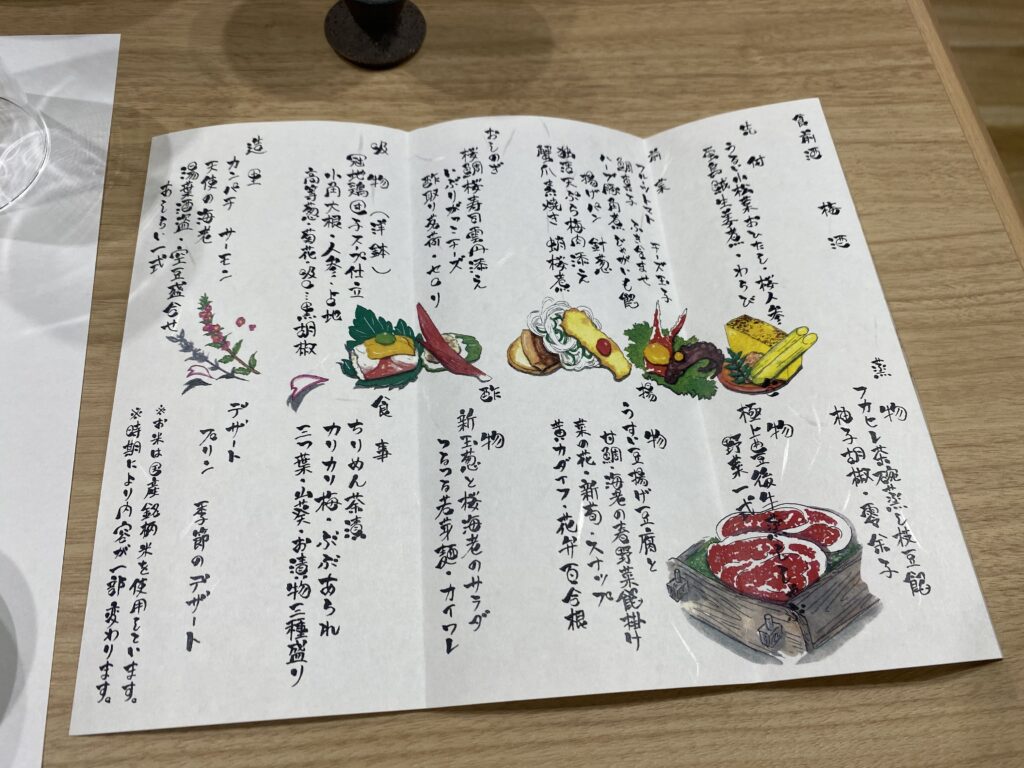 食前酒　梅酒
先付
うすい小松菜おひたし・桜人参
蛍烏賊生姜煮・わらび
前菜
フルーツトマト　チーズ玉子
鯛真子　ふきよせ
ハーブ豚角煮じゃがいも餡
揚げパン　針葱
独活天ぷら梅肉添え
蟹爪素焼き　蛸桜煮
おしのぎ
桜鯛桜寿司雲丹添え
いぶりがこチーズ
酢取り茗荷・セロリ
吸物（洋鉢）
地鶏団子スープ仕立
小角大根・人参・占地
白髪葱・菊花　吸口…黒胡椒
造里
カンパチ　サーモン
天使の海老
湯葉酒盗・空豆盛合せ
あしらい一式
蒸物
フカヒレ茶碗蒸し枝豆餡
柚子胡椒・零余子
物
極上豊後牛
野菜一式
揚物
うすい豆揚げ豆腐と
甘鯛・海老の春野菜餡掛け
菜の花・新筍・スナップ
黄カダイフ・花弁百合根
酢物
新玉葱と桜海老のサラダ
つるつる若芽麺・カイワレ
食事
ちりめん茶漬
カリカリ梅・ぶぶあられ
三つ葉・山葵・お漬物三種盛り
デザート
プリン　季節のデザート
※お米は国産銘柄米を使用しています。
※時期により内容が一部変わります。